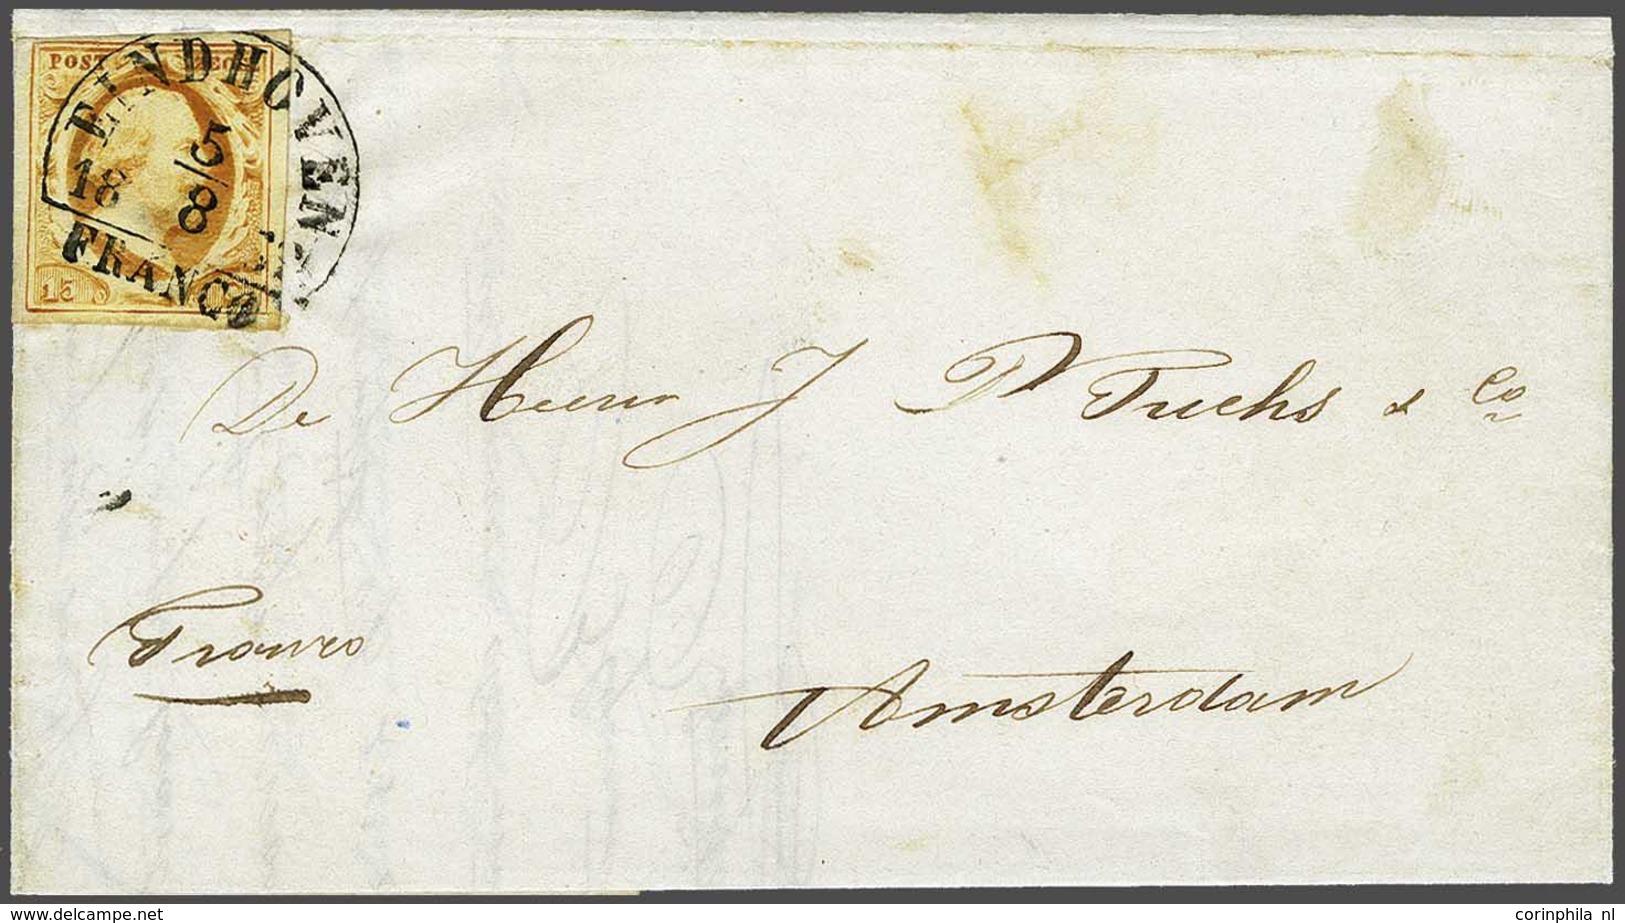 POST ZEGEL
EINDHOVEN
5/8
18
FRANCO
15
De Heeren J P Fuchs & Co
Franco
Amsterdam
www.delcampe.net
corinphila nl